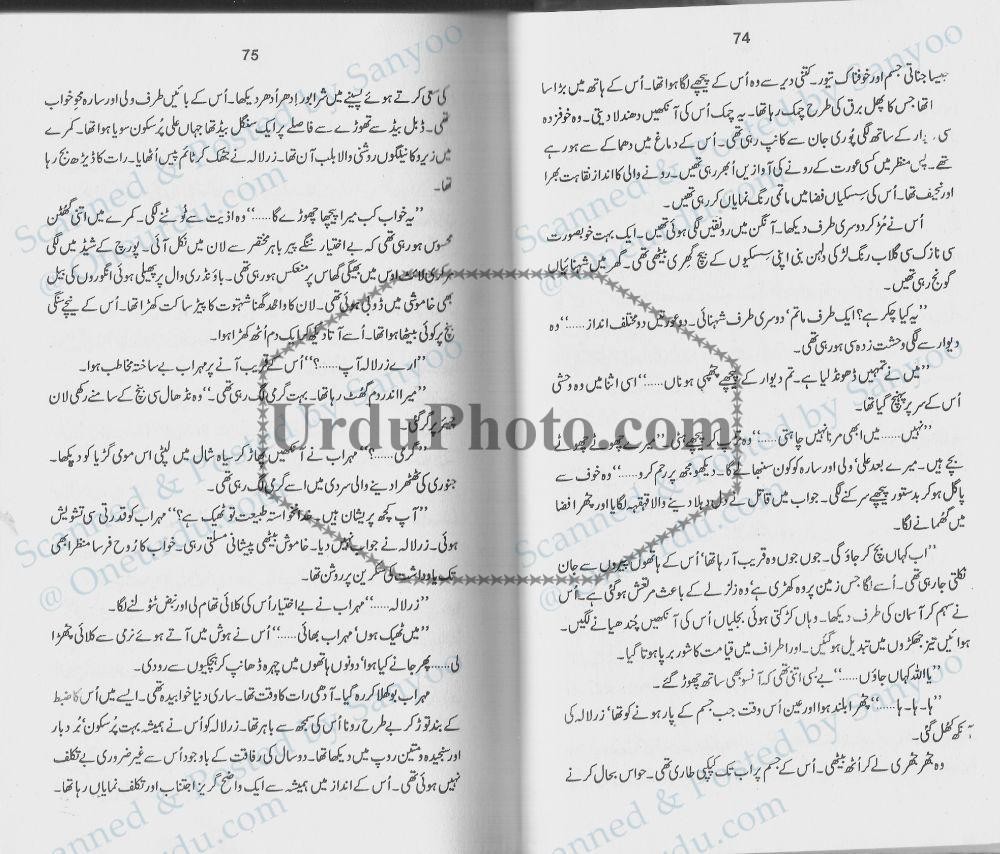 74
جیسا جناتی جسم اور خوفناک تیور۔ کتنی دیر سے وہ اُس کے پیچھے لگا ہوا تھا۔ اُس کے ہاتھ میں بڑا سا
تھا جس کا پھل برق کی طرح چمک رہا تھا۔ یہ چمک اُس کی آنکھیں دھندلا دیتی۔ وہ خوفزدہ
سی دیوار کے ساتھ لگی پُوری جان سے کانپ رہی تھی۔ اُس کے دماغ میں دھماکے سے ہو رہے
تھے۔ پس منظر میں کسی عورت کے رونے کی آوازیں اُبھر رہی تھیں۔ رونے والی کا انداز نقاہت بھرا
اور نحیف تھا۔ اُس کی سسکیاں فضا میں ماتمی رنگ نمایاں کر رہی تھیں۔
اُس نے مُڑ کر دوسری طرف دیکھا۔ آنگن میں رونقیں لگی ہوئی تھیں۔ ایک بہت خوبصورت
سی نازک سی گلاب رنگ لڑکی دلہن بنی اپنی سسکیوں کے بیچ گھری بیٹھی تھی۔ گھر میں شہنائیاں
گونج رہی تھیں۔
’’یہ کیا چکر ہے؟ ایک طرف ماتم‘ دوسری طرف شہنائی۔ دو عورتیں دو مختلف انداز……‘‘ وہ
دیوار سے لگی وحشت زدہ سی ہو رہی تھی۔
’’میں نے تمہیں ڈھونڈ لیا ہے۔ تم دیوار کے پیچھے چھپی ہو ناں……‘‘ اسی اثنا میں وہ وحشی
اُس کے سر پر پہنچ گیا تھا۔
’’نہیں…… میں ابھی مرنا نہیں چاہتی……‘‘ وہ تڑپ کر پیچھے ہٹی۔ ’’میرے چھوٹے چھوٹے
بچے ہیں۔ میرے بعد علی‘ ولی اور سارہ کو کون سنبھالے گا۔ دیکھو مجھ پر رحم کرو……‘‘ وہ خوف سے
پاگل ہو کر بدستور پیچھے سرکنے لگی۔ جواب میں قاتل نے دل دہلا دینے والا قہقہہ لگایا اور چھرا فضا
میں گھمانے لگا۔
’’اب کہاں بچ کر جاؤ گی۔ جوں جوں وہ قریب آ رہا تھا‘ اُس کے ہاتھوں پیروں سے جان
نکلتی جا رہی تھی۔ اُسے لگا جس زمین پر وہ کھڑی ہے‘ وہ زلزلے کے باعث مرتعش ہو گئی ہے۔ اُس
نے سہم کر آسمان کی طرف دیکھا۔ وہاں کڑکتی ہوئی بجلیاں اُس کی آنکھیں چُندھیانے لگیں۔
ہوائیں تیز جھکڑوں میں تبدیل ہو گئیں۔ اور اطراف میں قیامت کا شور برپا ہوتا گیا۔
’’یا اللہ کہاں جاؤں……‘‘ بے بسی اتنی تھی کہ آنسو بھی ساتھ چھوڑ گئے۔
’’ہا۔ ہا۔ ہا……‘‘ چھرا بلند ہوا اور عین اُس وقت جب جسم کے پار ہونے کو تھا‘ زرلالہ کی
آنکھ کھل گئی۔
وہ جھر جھری لے کر اُٹھ بیٹھی۔ اُس کے جسم پر اب تک کپکپی طاری تھی۔ حواس بحال کرنے
75
کی سعی کرتے ہوئے پسینے میں شرابور اِدھر اُدھر دیکھا۔ اُس کے بائیں طرف ولی اور سارہ محوِ خواب
تھی۔ ڈبل بیڈ سے تھوڑے سے فاصلے پر ایک سنگل بیڈ تھا جہاں علی پُرسکون سویا ہوا تھا۔ کمرے
میں زیرو کا نیلگوں روشنی والا بلب آن تھا۔ زرلالہ نے جھک کر ٹائم پیس اُٹھایا۔ رات کا ڈیڑھ بج رہا
تھا۔
’’یہ خواب کب میرا پیچھا چھوڑے گا……‘‘ وہ اذیت سے ٹوٹنے لگی۔ کمرے میں اتنی گھٹن
محسوس ہو رہی تھی کہ بے اختیار ننگے پیر باہر مختصر سے لان میں نکل آئی۔ پورچ کے شیڈ میں لگی
مرکری لائٹ اوس میں بھیگی گھاس پر منعکس ہو رہی تھی۔ باؤنڈری وال پر پھیلی ہوئی انگوروں کی بیل
بھی خاموشی میں ڈوبی ہوئی تھی۔ لان کا واحد گھنا شہتوت کا پیڑ ساکت کھڑا تھا۔ اُس کے نیچے سنگی
بنچ پر کوئی بیٹھا ہوا تھا۔ اُسے آتا دیکھ کر ایک دم اُٹھ کھڑا ہوا۔
’’ارے زرلالہ آپ……؟‘‘ اُس کے قریب آنے پر مہراب بے ساختہ مخاطب ہوا۔
’’میرا اندر دم گھٹ رہا تھا۔ بہت گرمی لگ رہی تھی۔‘‘ وہ نڈھال سی بنچ کے سامنے رکھی لان
چیئر پر گر گئی۔
’’گرمی……؟‘‘ مہراب نے آنکھیں پھاڑ کر سیاہ شال میں لپٹی اس مومی گڑیا کو دیکھا۔
جنوری کی ٹھٹھرا دینے والی سردی میں اسے گرمی لگ رہی تھی۔
’’آپ کچھ پریشان ہیں۔ خدانخواستہ طبیعت تو ٹھیک ہے؟‘‘ مہراب کو قدرتی سی تشویش
ہوئی۔ زرلالہ نے جواب نہیں دیا۔ خاموش بیٹھی پیشانی مسلتی رہی۔ خواب کا رُوح فرسا منظر ابھی
تک یادداشت کی سکرین پر روشن تھا۔
’’زرلالہ……‘‘ مہراب نے بے اختیار اُس کی کلائی تھام لی اور نبض ٹٹولنے لگا۔
’’میں ٹھیک ہوں‘ مہراب بھائی……‘‘ اُس نے ہوش میں آتے ہوئے نرمی سے کلائی چھڑا
لی…… پھر جانے کیا ہوا‘ دونوں ہاتھوں میں چہرہ ڈھانپ کر ہچکیوں سے رو دی۔
مہراب بوکھلا کر رہ گیا۔ آدھی رات کا وقت تھا۔ ساری دنیا خوابیدہ تھی۔ ایسے میں اُس کا ضبط
کے بند توڑ کر بے طرح رونا اُس کی سمجھ سے باہر تھا۔ زرلالہ کو اس نے ہمیشہ بہت پُرسکون‘ بُردبار
اور سنجیدہ و متین روپ میں دیکھا تھا۔ دو سال کی رفاقت کے باوجود اُس سے غیر ضروری بے تکلف
نہیں ہوئی تھی۔ اُس کے انداز میں ہمیشہ سے ایک واضح گریز‘ اجتناب اور تکلف نمایاں رہا تھا۔
UrduPhoto.com
Scanned & Posted by Sanyoo
@ Oneurdu.com